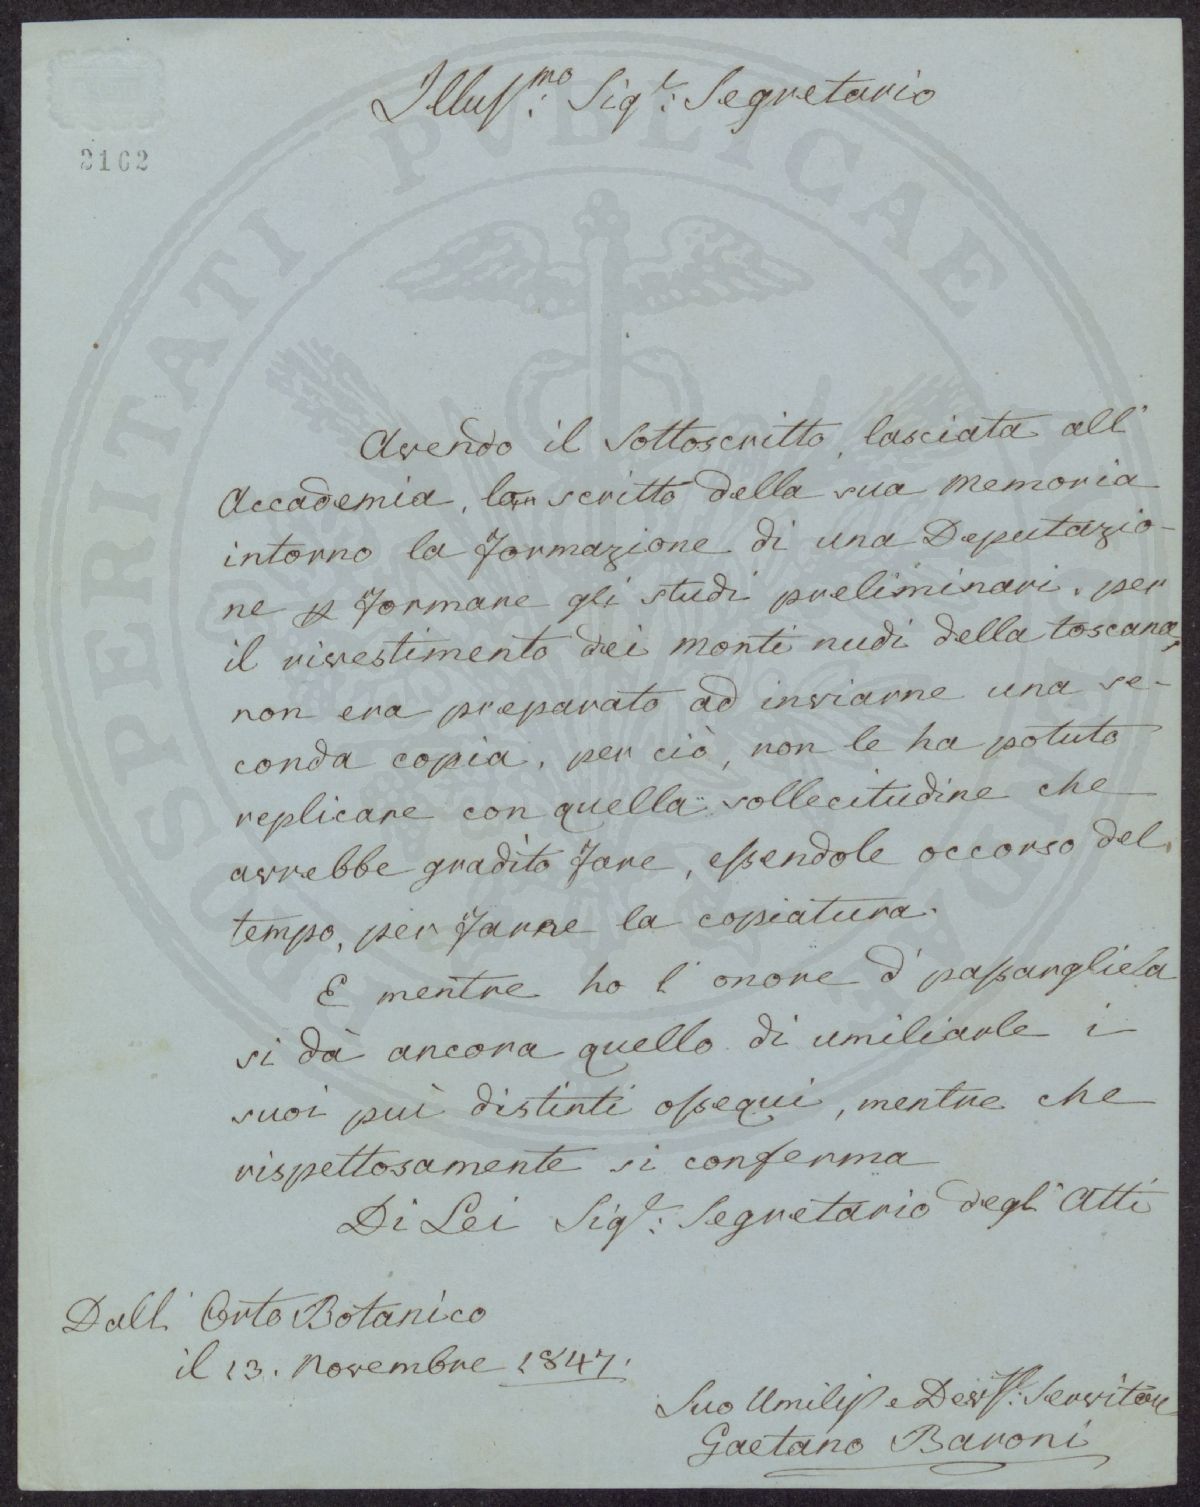 Illuss.mo Sigr: Segretario
2102
Avendo il sottoscritto, lasciata all'
Accademia, lo scritto della sua memoria
intorno la formazione di una Deputazio-
ne p formare gli studi preliminari, per
il rivestimento dei monti nudi della toscana,
non era preparato ad inviarne una se-
conda copia, per ciò, non le ha potuto
replicare con quella sollecitudine che
avrebbe gradito fare, essendole occorso del
tempo, per farne la copiatura.
E mentre ho l'onore d'passargliela
si dà ancora quello di umiliarle i
suoi più distinti ossequi, mentre che
rispettosamente si conferma
Di Lei Sigr: Segretario degl'Atti
Dall'Orto Botanico
il 13. Novembre 1847.
Suo Umiliss e Devss: Servitore
Gaetano Baroni
PROSPERITATI PVBLICAE